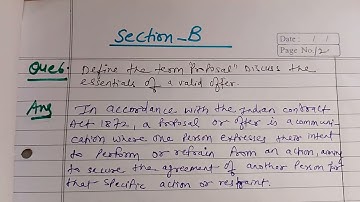 Section-B
Date : / /
Page No. 2
Que6: Define the term "Proposal" Discuss the
essentials of a valid offer.
Ans In accordance with the Indian contract
Act 1872, a proposal or offer is a communi-
cation where one person expresses their intent
to perform or refrain from an action, aiming
to secure the agreement of another person for
that specific action or restraint.